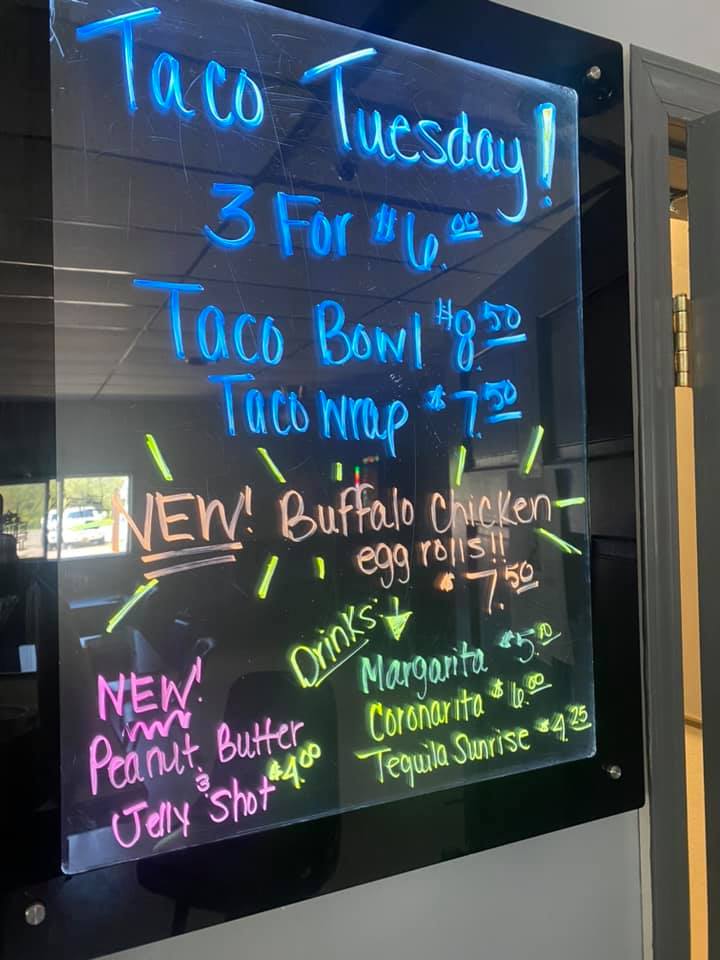 Taco Tuesday!
3 For $6.00
Taco Bowl $8.50
Taco Wrap $7.50
NEW! Buffalo Chicken
egg rolls!!
$7.50
Drinks:
Margarita $5.00
Coronarita $6.00
Tequila Sunrise $4.25
NEW!
Peanut Butter
& Jelly Shot $4.00